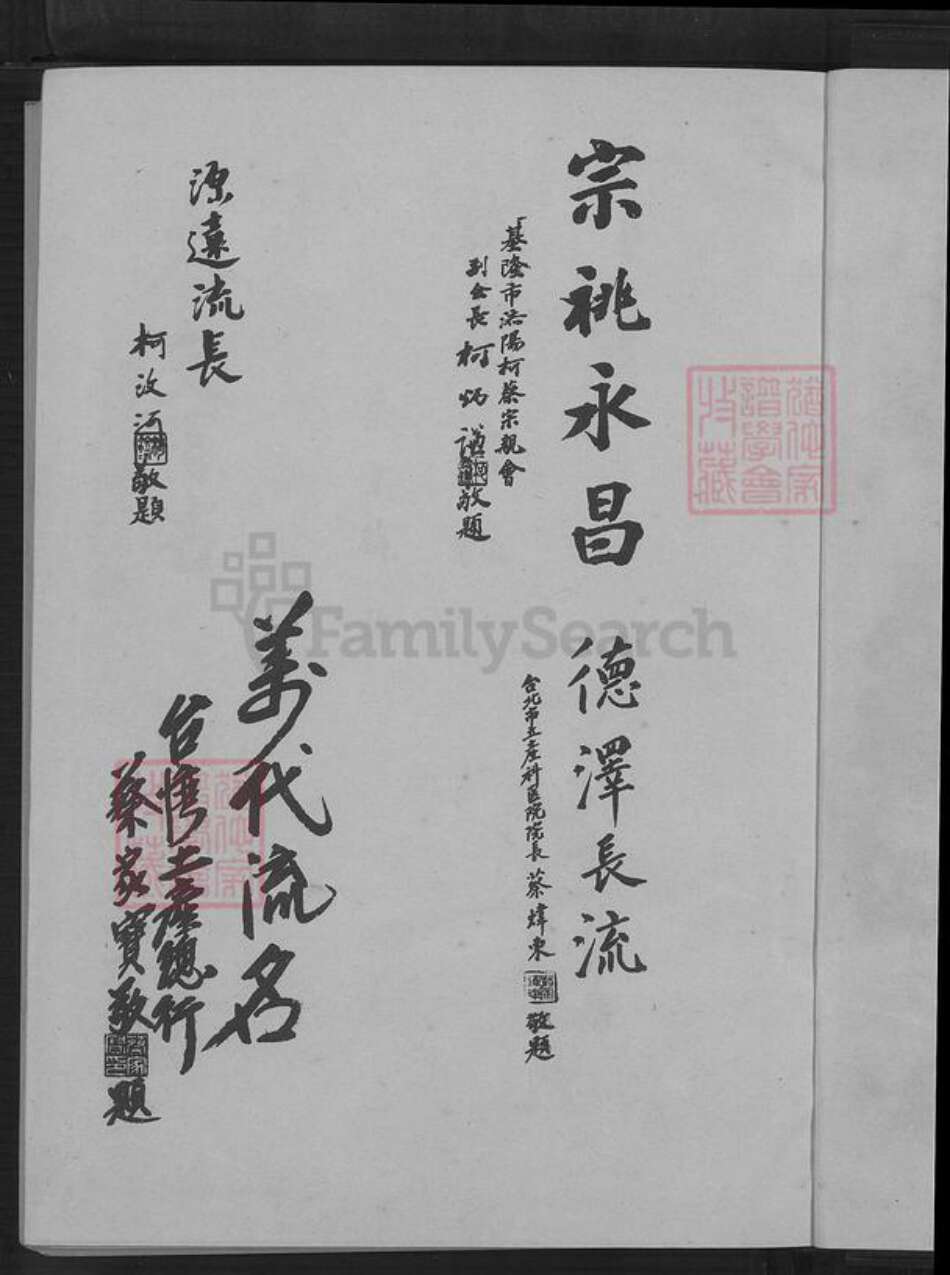 宗祧永昌
基隆市濟陽柯蔡宗親會
副會長 柯炳謹 敬題
德澤長流
台北市立產科医院院長 蔡煒東 敬題
源遠流長
柯汶河 敬題
萬代流名
台灣土產總行
蔡家寶敬題
FamilySearch